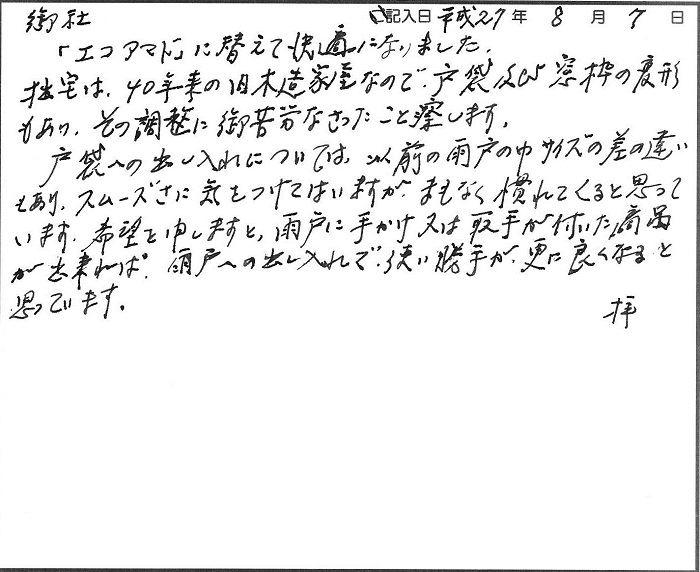 記入日 平成27年 8月 7日
御社
「エコアマド」に替えて快適になりました.
拙宅は、40年来の旧木造家屋なので、戸袋及び窓枠の変形
もあり、その調整に御苦労なさったこと察します。
戸袋への出し入れについては、以前の雨戸の巾サイズの差の違い
もあり、スムーズさに気をつけてはいますが、まもなく慣れてくると思って
います. 希望を申しますと、雨戸に手かけ又は取手が付いた商品
が出来れば、雨戸への出し入れで、使い勝手が、更に良くなると
思っています。
拝